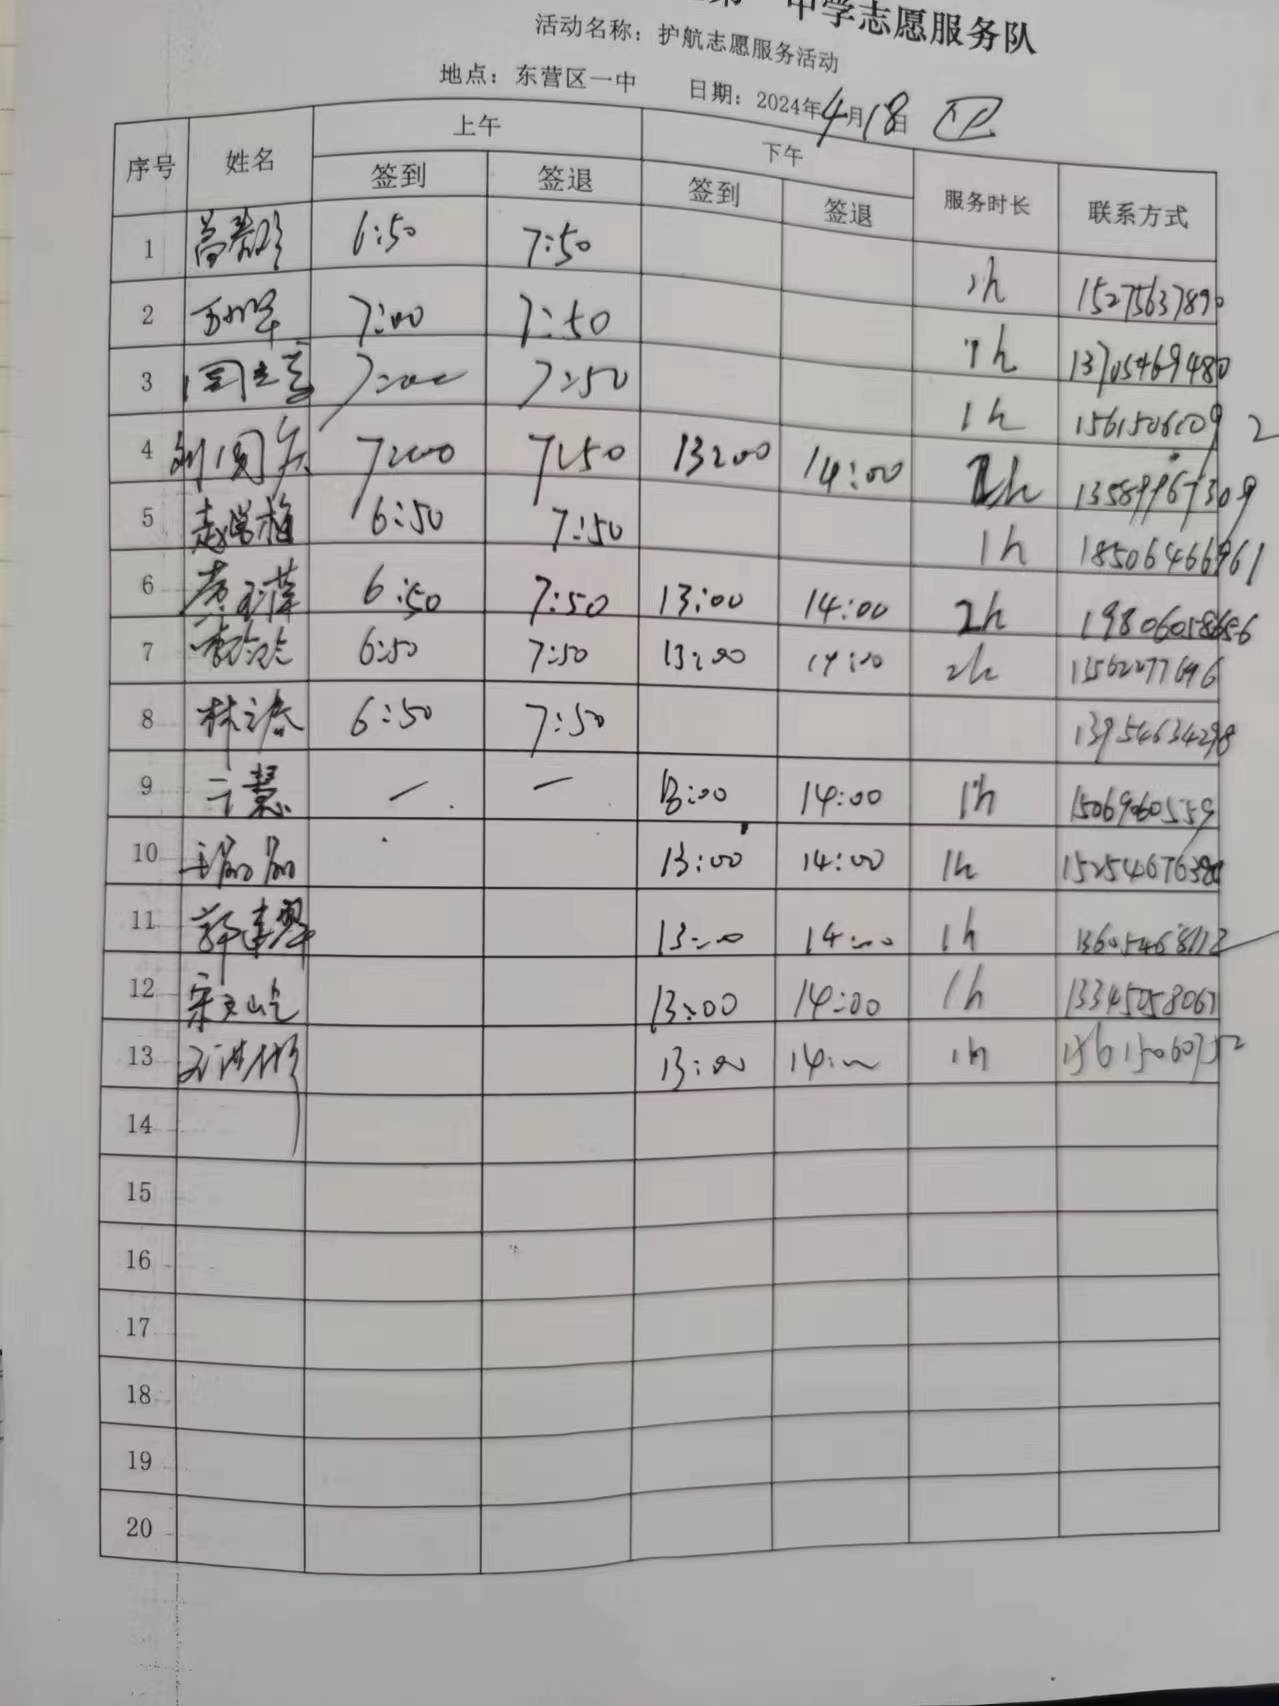 中学志愿服务队
活动名称：护航志愿服务活动
地点：东营区一中 日期：2024年4月18日 四
序号 姓名 上午 下午 服务时长 联系方式
签到 签退 签到 签退
1 6:50 7:50 1h 15275637890
2 7:00 7:50 1h 13705469480
3 7:00 7:50 1h
4 刘国庆 7:00 7:50 13:00 14:00 2h 13589967309
5 赵学梅 6:50 7:50 1h 18506466961
6 6:50 7:50 13:00 14:00 2h
7 6:50 7:50 13:00 14:00 2h
8 林之春 6:50 7:50 13954634298
9 慧 — — 13:00 14:00 1h 15069060559
10 王丽丽 13:00 14:00 1h
11 薛建翠 13:00 14:00 1h
12 宋 13:00 14:00 1h 13345058061
13 13:00 14:00 1h 15615060752
14
15
16
17
18
19
20